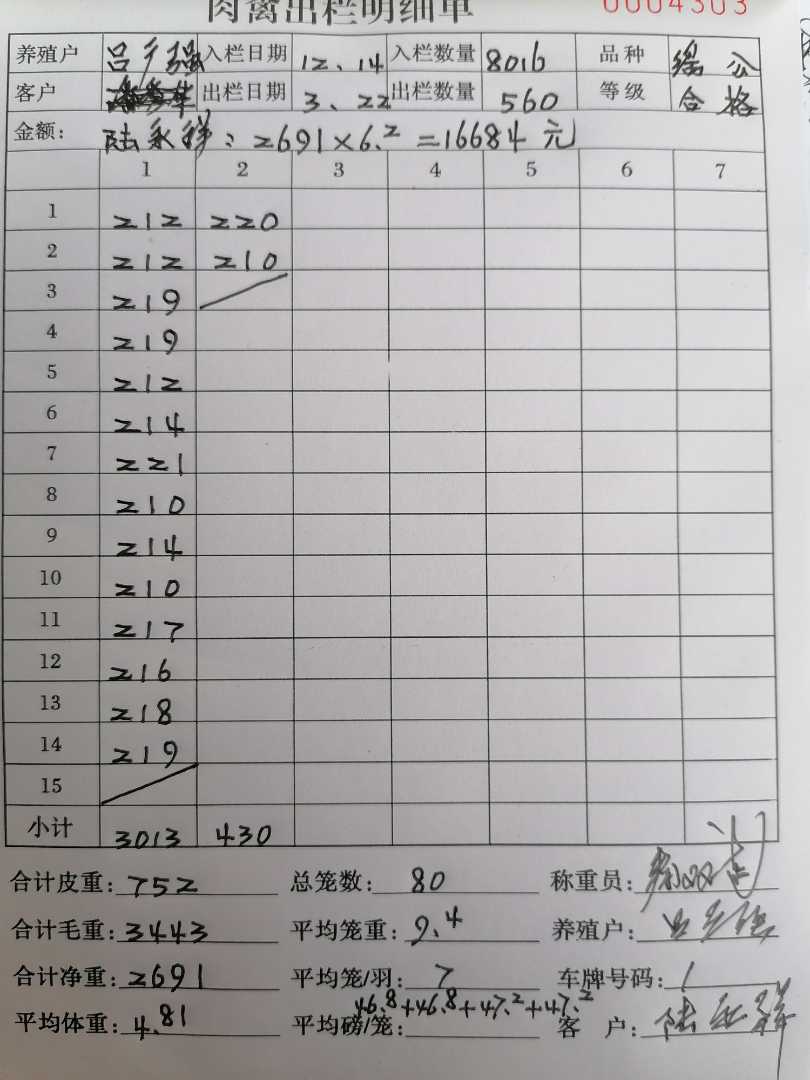 肉禽出栏明细单 0004303
养殖户 吕乡强 入栏日期 12、14 入栏数量 8016 品种 瑶公
客户 出栏日期 3、22 出栏数量 560 等级 合格
金额: 陆永群: 2691×6.2=16684元
1 2 3 4 5 6 7
1 212 220
2 212 210
3 219
4 219
5 212
6 214
7 221
8 210
9 214
10 210
11 217
12 216
13 218
14 219
15
小计 3013 430
合计皮重: 752 总笼数: 80 称重员:
合计毛重: 3443 平均笼重: 9.4 养殖户: 吕乡强
合计净重: 2691 平均笼/羽: 7 车牌号码: /
平均体重: 4.81 平均磅/笼: 46.8+46.8+47.2+47.2 客 户: 陆永群